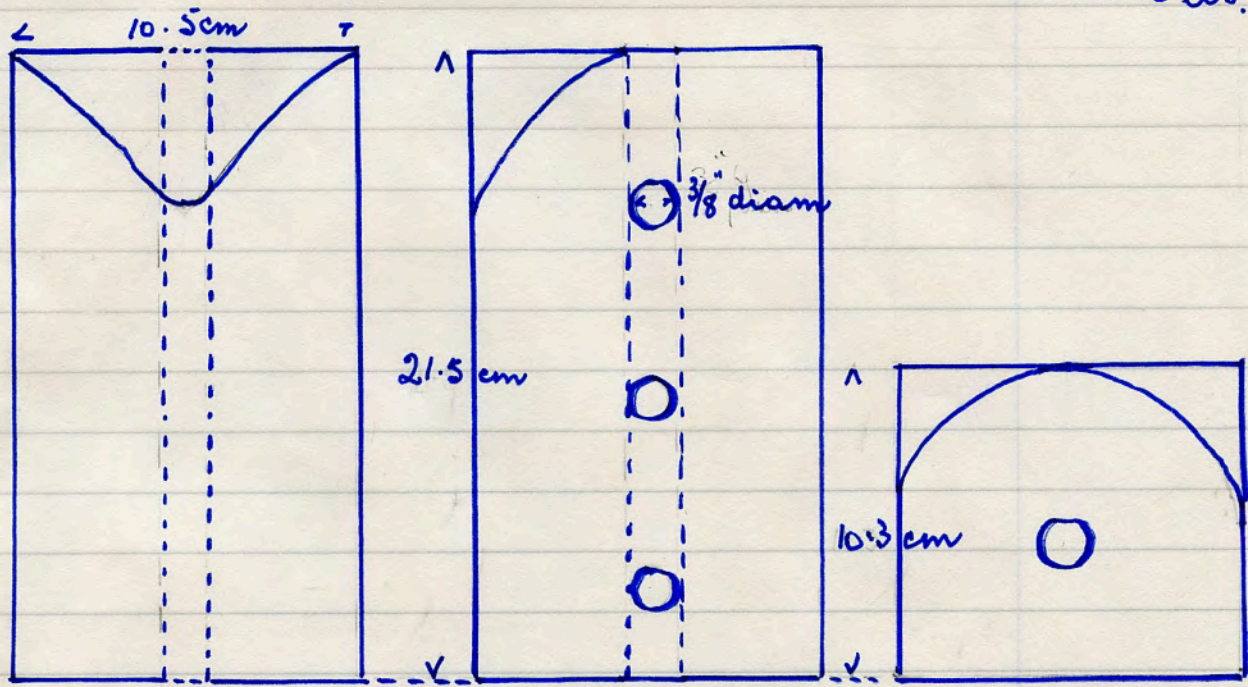 10.5cm
3/8" diam
21.5 cm
10.3 cm